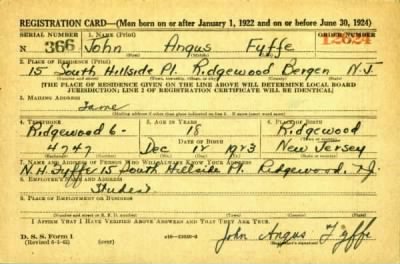 REGISTRATION CARD—(Men born on or after January 1, 1922 and on or before June 30, 1924)
SERIAL NUMBER 1. NAME (Print) ORDER NUMBER
N 366 John Angus Fyffe 12624
2. PLACE OF RESIDENCE (Print)
15 South Hillside Pl. Ridgewood Bergen N.J.
[THE PLACE OF RESIDENCE GIVEN ON THE LINE ABOVE WILL DETERMINE LOCAL BOARD
JURISDICTION; LINE 2 OF REGISTRATION CERTIFICATE WILL BE IDENTICAL]
3. MAILING ADDRESS
Same
4. TELEPHONE 5. AGE IN YEARS 6. PLACE OF BIRTH
Ridgewood 6- 18 Ridgewood
DATE OF BIRTH
4747 Dec 1923 New Jersey
7. NAME AND ADDRESS OF PERSON WHO WILL ALWAYS KNOW YOUR ADDRESS
N.H. Fyffe 15 South Hillside Pl. Ridgewood, N.J.
8. EMPLOYER'S NAME AND ADDRESS
Student
9. PLACE OF EMPLOYMENT OR BUSINESS
I AFFIRM THAT I HAVE VERIFIED ABOVE ANSWERS AND THAT THEY ARE TRUE.
D. S. S. Form 1
(Revised 6-1-42) (over)
John Angus Fyffe